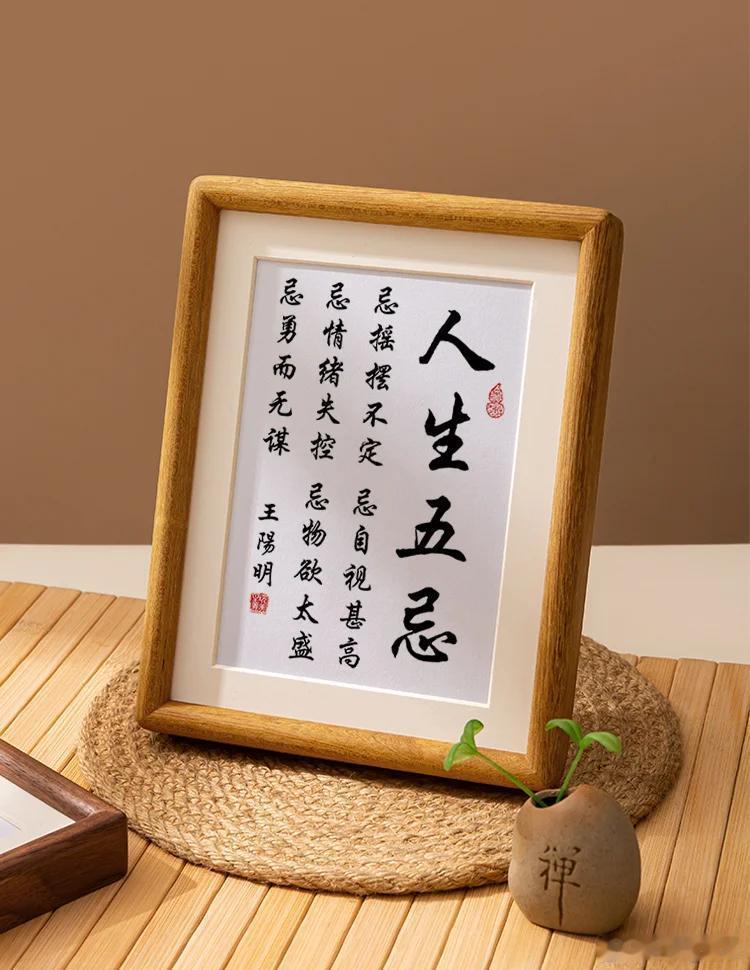 人生五忌
忌摇摆不定 忌自视甚高
忌情绪失控 忌物欲太盛
忌勇而无谋 王陽明
禅